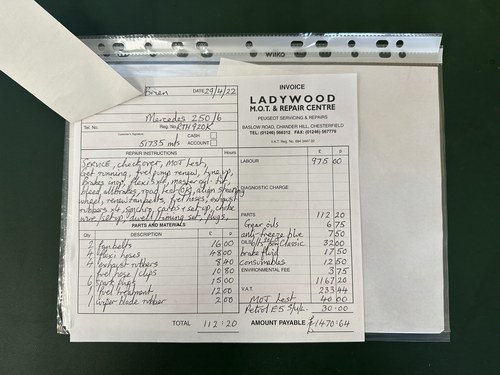 WIRO
Brian
DATE 29/4/22
Mercedes 250/6
Tel. No.
Reg. No. RTH920K
Customer's Signature
CASH
51735 mls
ACCOUNT
REPAIR INSTRUCTIONS
Hours
Service, checkover, MOT test,
Get running, fuel pump renew, tyre up,
brakes insp, flexis x4, master cyl
bleed all brakes, road test align steering
wheel, renew fan belts, fuel hoses, exhaust
rubbers x4, synchro carbs + set up, choke
wire / set up, dwell, timing set, plugs,
PARTS AND MATERIALS
Qty
DESCRIPTION
£
P
2 fan belts 16 00
4 flexi hoses 48 00
4 exhaust rubbers 8 40
fuel hose / clips 10 80
6 spark plugs 15 00
1 fuel treatment 12 00
1 wiper blade rubber 2 00
TOTAL 112:20
INVOICE
LADYWOOD
M.O.T. & REPAIR CENTRE
PEUGEOT SERVICING & REPAIRS
BASLOW ROAD, CHANDER HILL, CHESTERFIELD
£ P
LABOUR 975 00
DIAGNOSTIC CHARGE
PARTS 112 20
Gear oils 6 75
anti-freeze blue 7 50
OILS Classic 32 00
brake fluid 17 50
consumables 12 50
ENVIRONMENTAL FEE 3 75
1167 20
V.A.T. 233 44
MOT test 40 00
Petrol E5 S/U/L 30 00
AMOUNT PAYABLE £1470:64